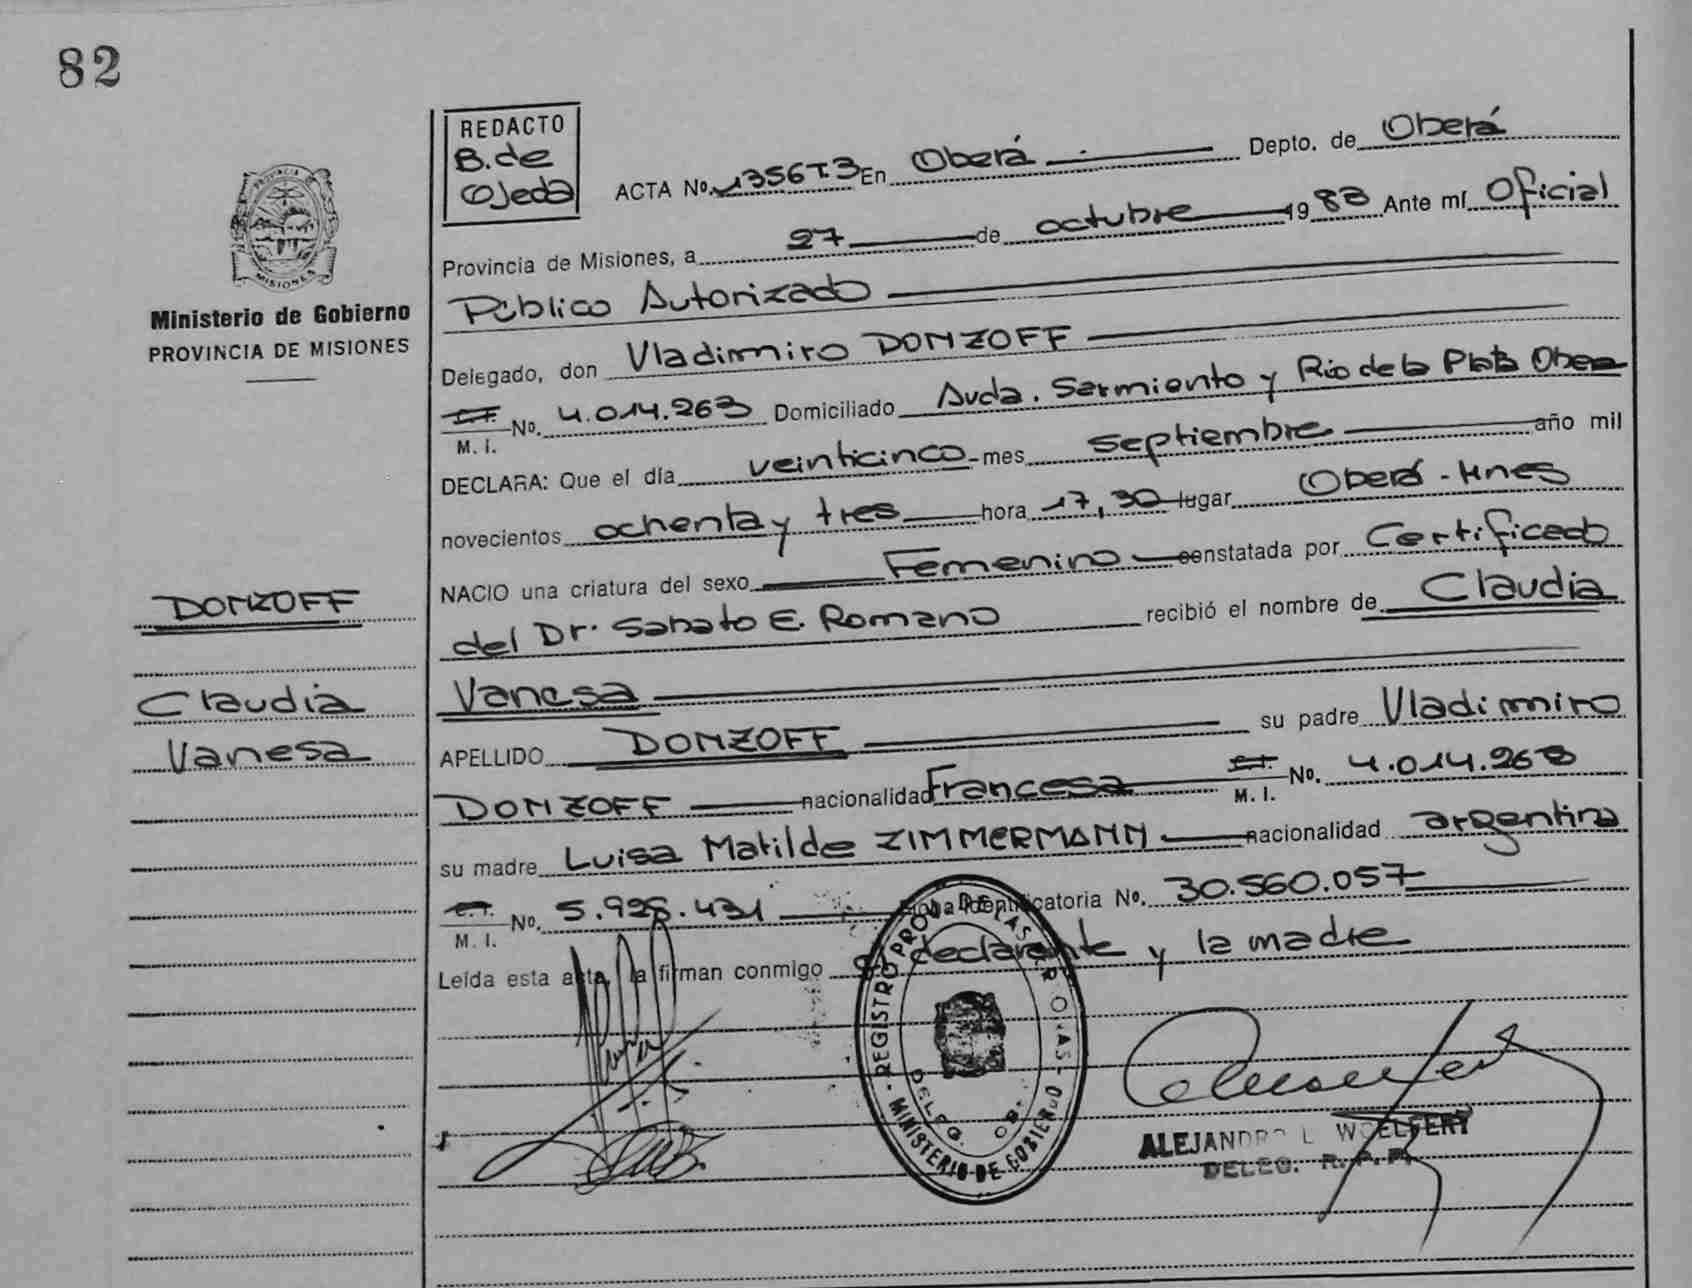 82
REDACTO
B. de
Ojeda
ACTA No. 1356T3 En Oberá Depto. de Oberá
Provincia de Misiones, a 27 de octubre 1983 Ante mí Oficial
Público Autorizado
Delegado, don Vladimiro DONZOFF
C.I. No. 4.014.263 Domiciliado Avda. Sarmiento y Rio de la Plata Oberá
M. I.
DECLARA: Que el día veinticinco mes septiembre año mil
novecientos ochenta y tres hora 17,30 lugar Oberá - Mnes
NACIO una criatura del sexo Femenino constatada por Certificado
del Dr. Sabato E. Romano recibió el nombre de Claudia
Vanesa
APELLIDO DONZOFF su padre Vladimiro
DONZOFF nacionalidad Francesa C.I. No. 4.014.263
M. I.
su madre Luisa Matilde ZIMMERMANN nacionalidad argentina
C.I. No. 5.926.431 Ficha Identificatoria No. 30.560.057
M. I.
Leída esta acta, la firman conmigo el declarante y la madre
Ministerio de Gobierno
PROVINCIA DE MISIONES
DONZOFF
Claudia
Vanesa
MISIONES
REGISTRO PROV. DE LAS PERSONAS
MINISTERIO DE GOBIERNO
DELEG. OB.
ALEJANDRO L WOELFERT
DELEG. R. P. P.